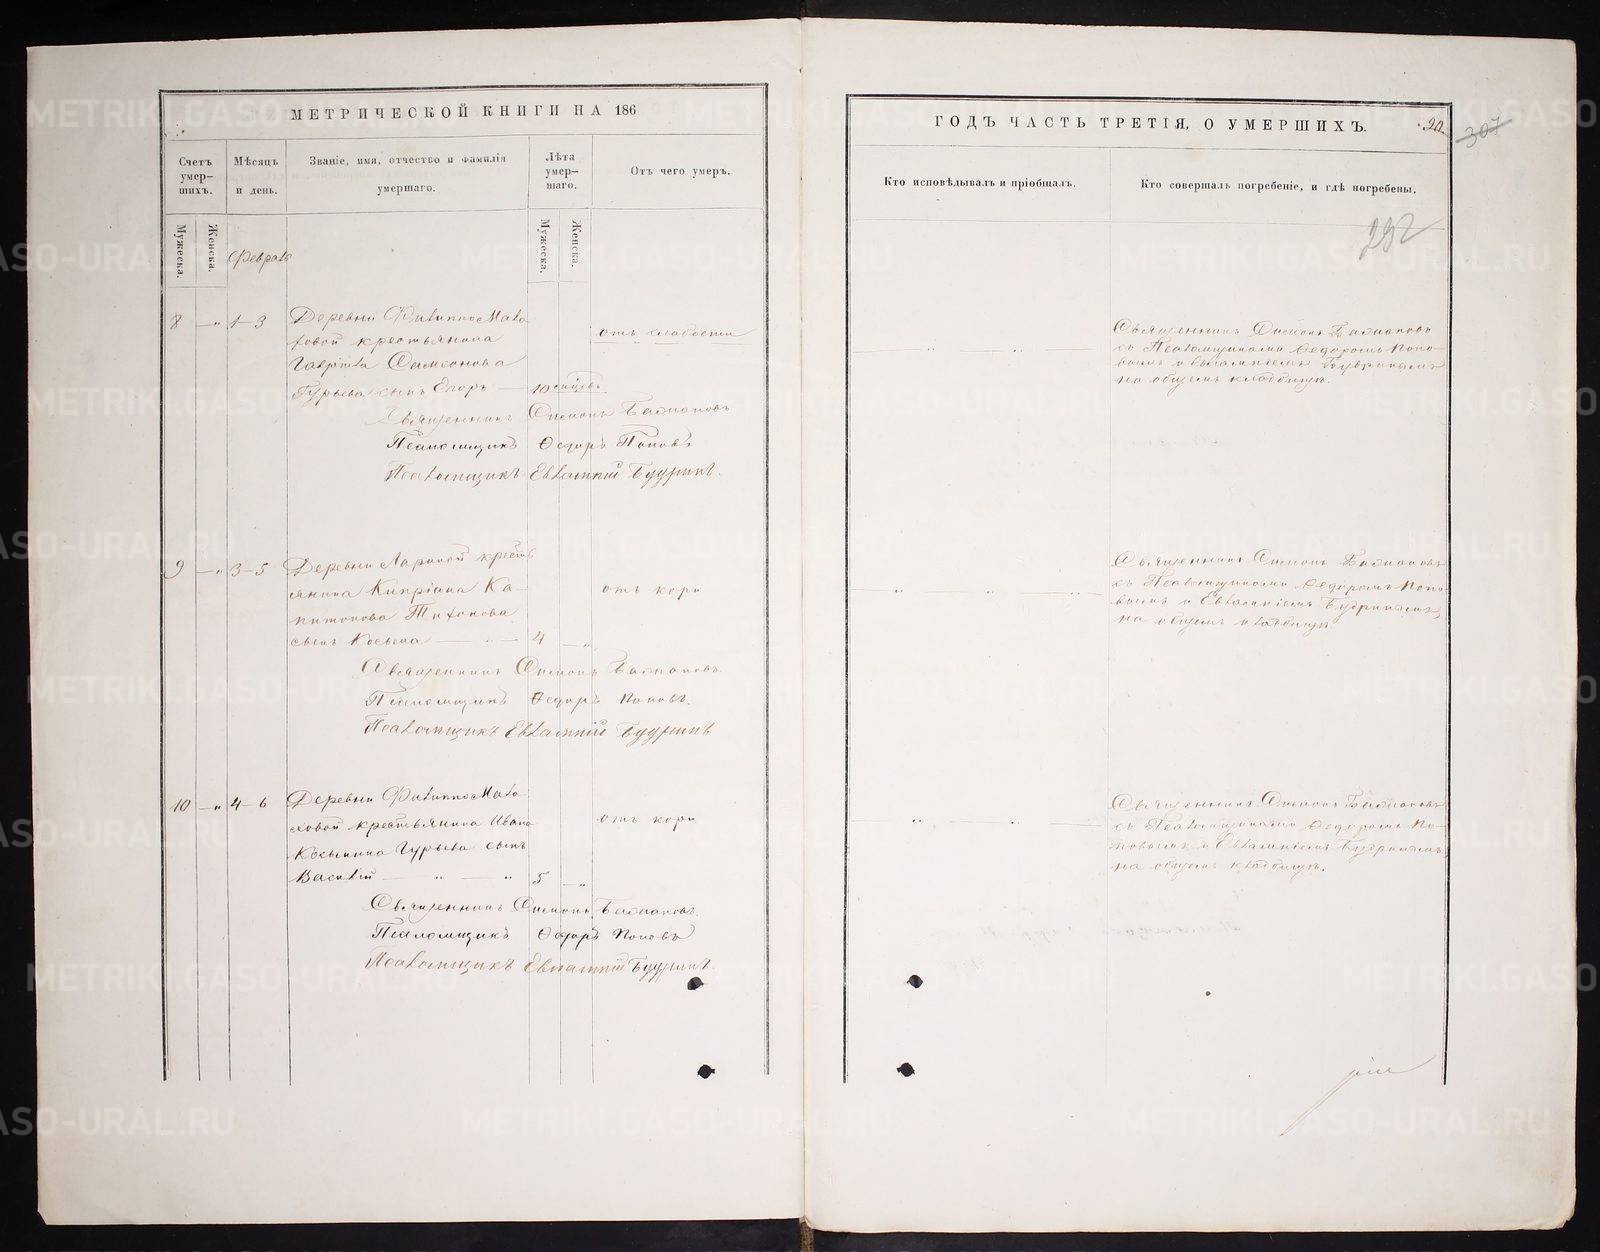 МЕТРИЧЕСКОЙ КНИГИ НА 186
Счетъ умер-
шихъ.
Мѣсяцъ
и день.
Званіе, имя, отчество и фамилія
умершаго.
Лѣта
умер-
шаго.
Отъ чего умеръ.
Мужеска.
Женска.
Мужеска.
Женска.
Февраль
8 — „ 1-3 Деревни Филиппо Мало-
ховой крестьянина
Гаврила Самсонова
Гурьева сынъ Егоръ — 10
отъ слабости
Священникъ Симонъ
Псаломщикъ Ѳедоръ Поповъ
Псаломщикъ Евлампій Будринъ.
9 — „ 3-5 Деревни Лариной кресть-
янина Кипріана Ка-
питонова Тихонова
сынъ Косьма — „ — 4 — „
отъ кори
Священникъ Симонъ
Псаломщикъ Ѳедоръ Поповъ.
Псаломщикъ Евлампій Будринъ
10 — „ 4-6 Деревни Филиппо Мало-
ховой крестьянина Ивана
Козьмина Гурьева сынъ
Василій — „ — „ 5 — „
отъ кори
Священникъ Симонъ
Псаломщикъ Ѳедоръ Поповъ
Псаломщикъ Евлампій Будринъ.
ГОДЪ ЧАСТЬ ТРЕТІЯ, О УМЕРШИХЪ.
20.
307
292
Кто исповѣдывалъ и пріобщалъ.
Кто совершалъ погребеніе, и гдѣ погребены.
Священникъ Симонъ
съ Псаломщиками Ѳедоромъ Попо-
вымъ и Евлампіемъ Будринымъ
на общемъ кладбищѣ.
Священникъ Симонъ
съ Псаломщиками Ѳедоромъ Попо-
вымъ и Евлампіемъ Будринымъ,
на общемъ кладбищѣ
Священникъ Симонъ
съ Псаломщиками Ѳедоромъ По-
повымъ и Евлампіемъ Будринымъ,
на общемъ кладбищѣ.
METRIKI.GASO-URAL.RU